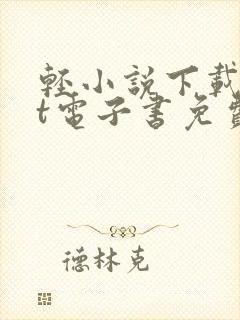 輕小說下載
t電子書免費
德林克